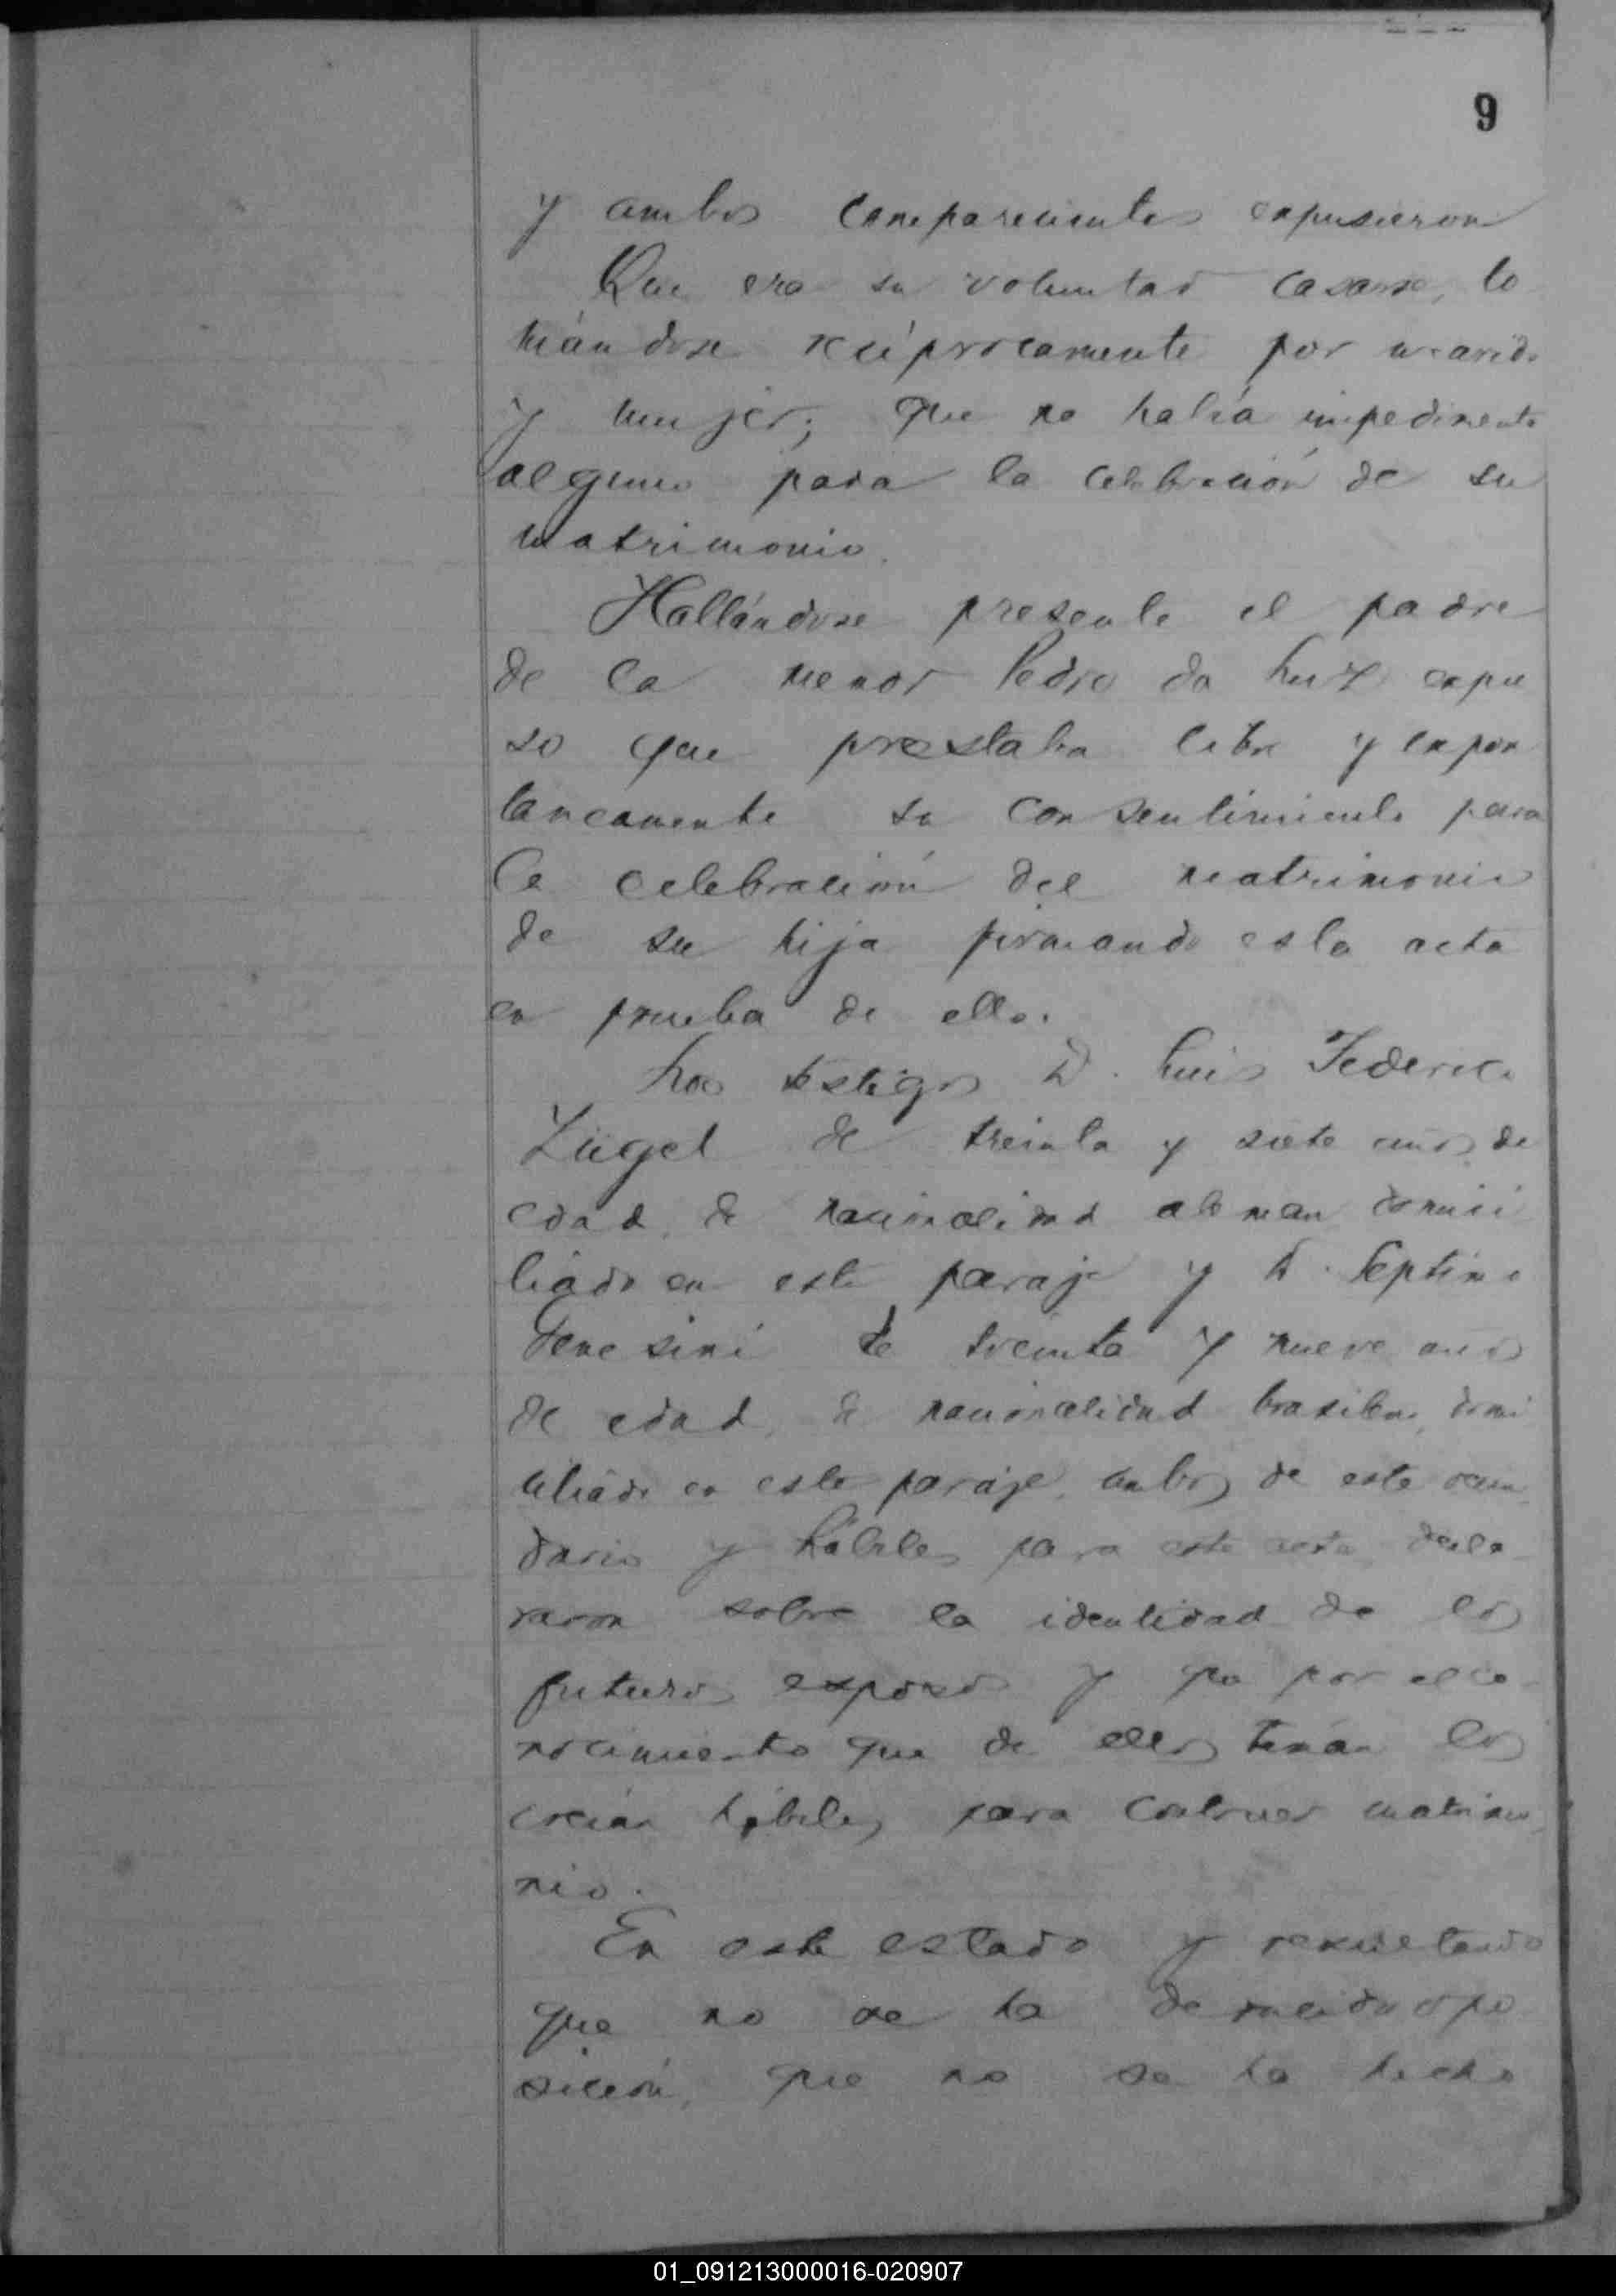 9
y ambos comparecientes expusieron
Que era su voluntad casarse, to
mándose recíprocamente por marido
y mujer; que no había impedimento
alguno para la celebración de su
matrimonio.
Hallándose presente el padre
de la menor Pedro da Luz expu
so que prestaba libre y expon
taneamente su consentimiento para
la celebración del matrimonio
de su hija firmando esta acta
en prueba de ello.
Los testigos D. Luis Federico
Zügel de treinta y siete años de
edad, de nacionalidad aleman domici
liado en este paraje y D. Septimo
de treinta y nueve años
de edad, de nacionalidad brasilera, domi
ciliado en este paraje, ambos de este vecin
dario y hábiles para este acto, decla
raron sobre la identidad de los
futuros esposos y que por el co
nocimiento que de ellos tenían los
creían hábiles para contraer matrimo
nio.
En este estado y resultando
que no se ha deducido opo
sición, que no se ha hecho
01_091213000016-020907